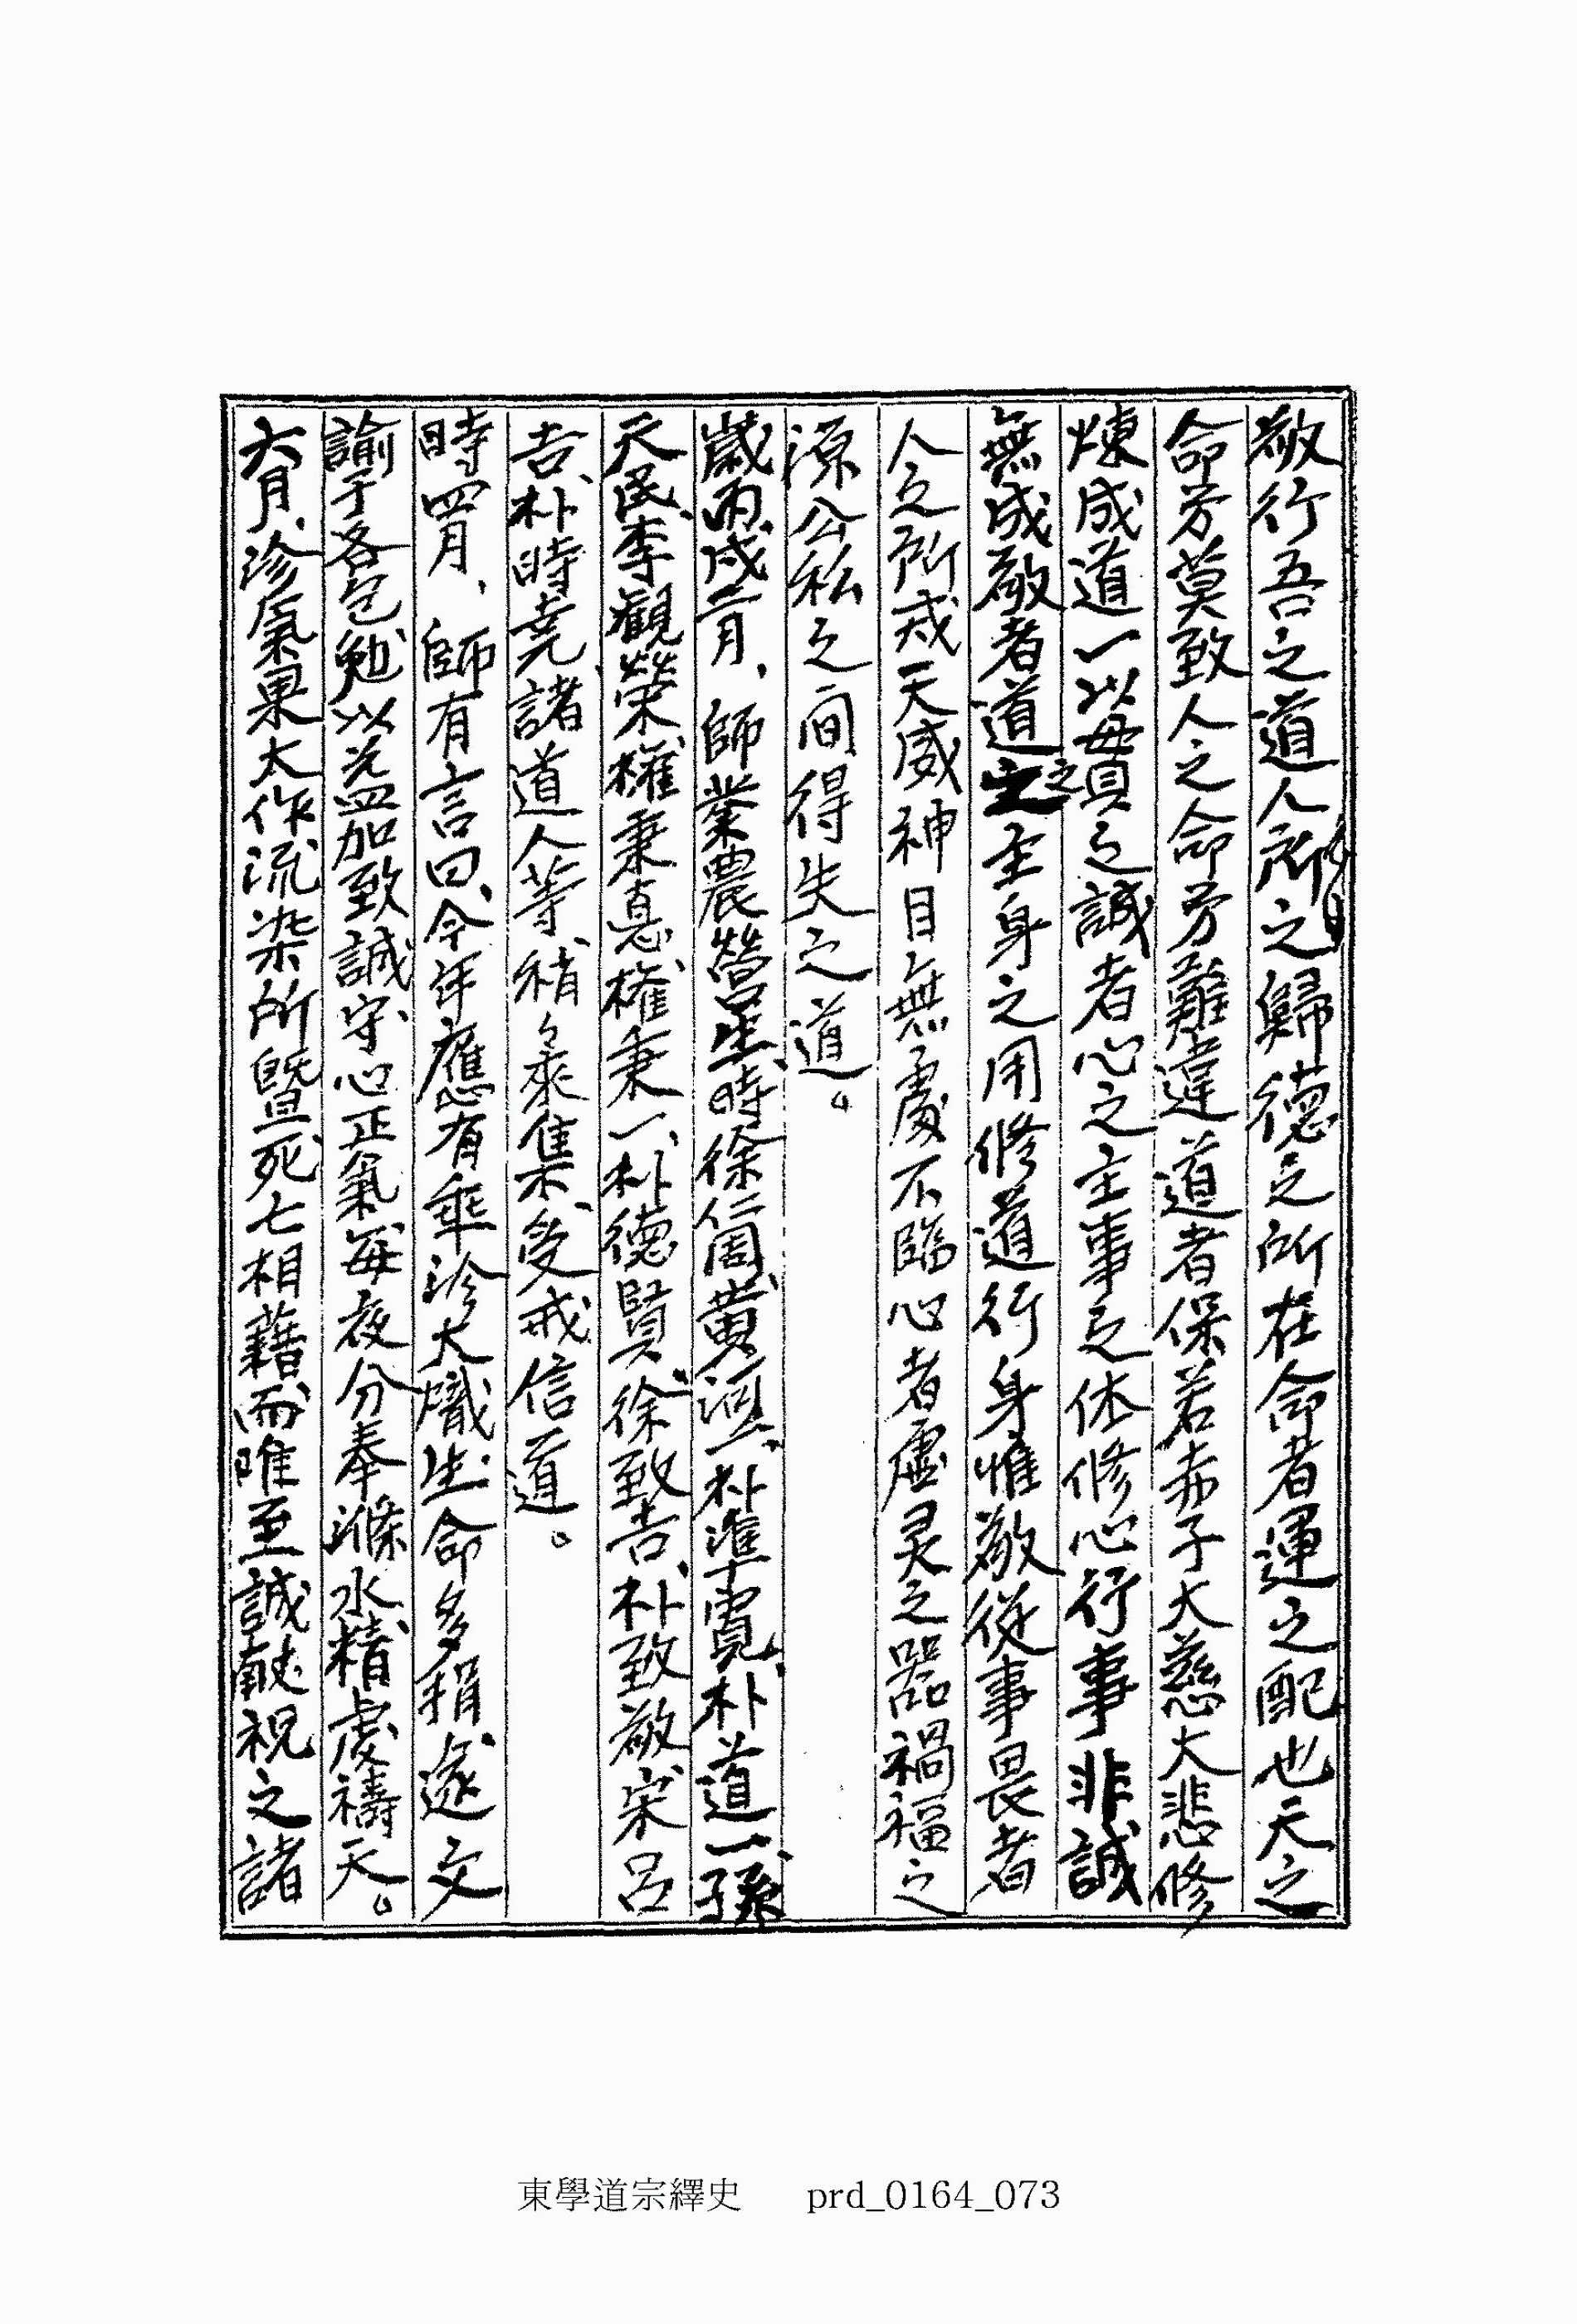 敬行吾之道人所之歸德之所在命者運之配也天之
命芳莫致人之命芳難違道者保若赤子大慈大悲修
煉成道一以貫之誠者心之主事之体修心行事非誠
無成敬者道之主身之用修道行身惟敬從事畏者
人之所戒天威神目無處不臨心者虛灵之器禍福之
源公私之间得失之道。
歲丙戌二月、師業農營生、時徐仁周、黄河一、朴準寬、朴道一、孫
天民、李觀榮、權秉悳、權秉一、朴德賢、徐致吉、朴致敬、宋呂
吉、朴時堯、諸道人等、稍々來集、受戒信道。
時四月、師有言曰、今年應有乖沴大熾、生命多捐、遂文
諭于各包、勉以益加致誠、守心正氣、每夜分奉滌水、精虔禱天。
六月、沴氣果太作流染、所曁死亡相藉、而唯至誠獻祝之諸
東學道宗繹史 prd_0164_073